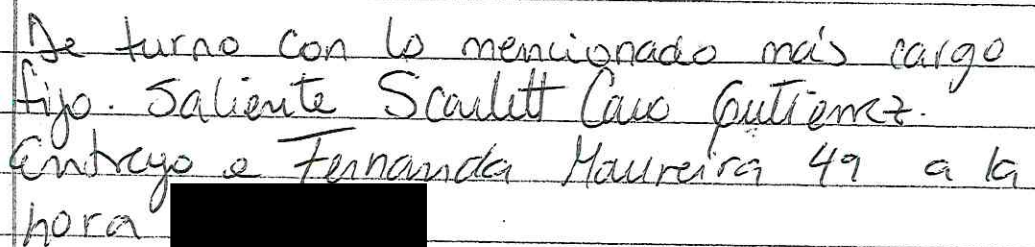 De turno con lo mencionado más cargo
fijo. Saliente Scarlett Caro Gutierrez.
Entrego a Fernanda Maureira 49 a la
hora